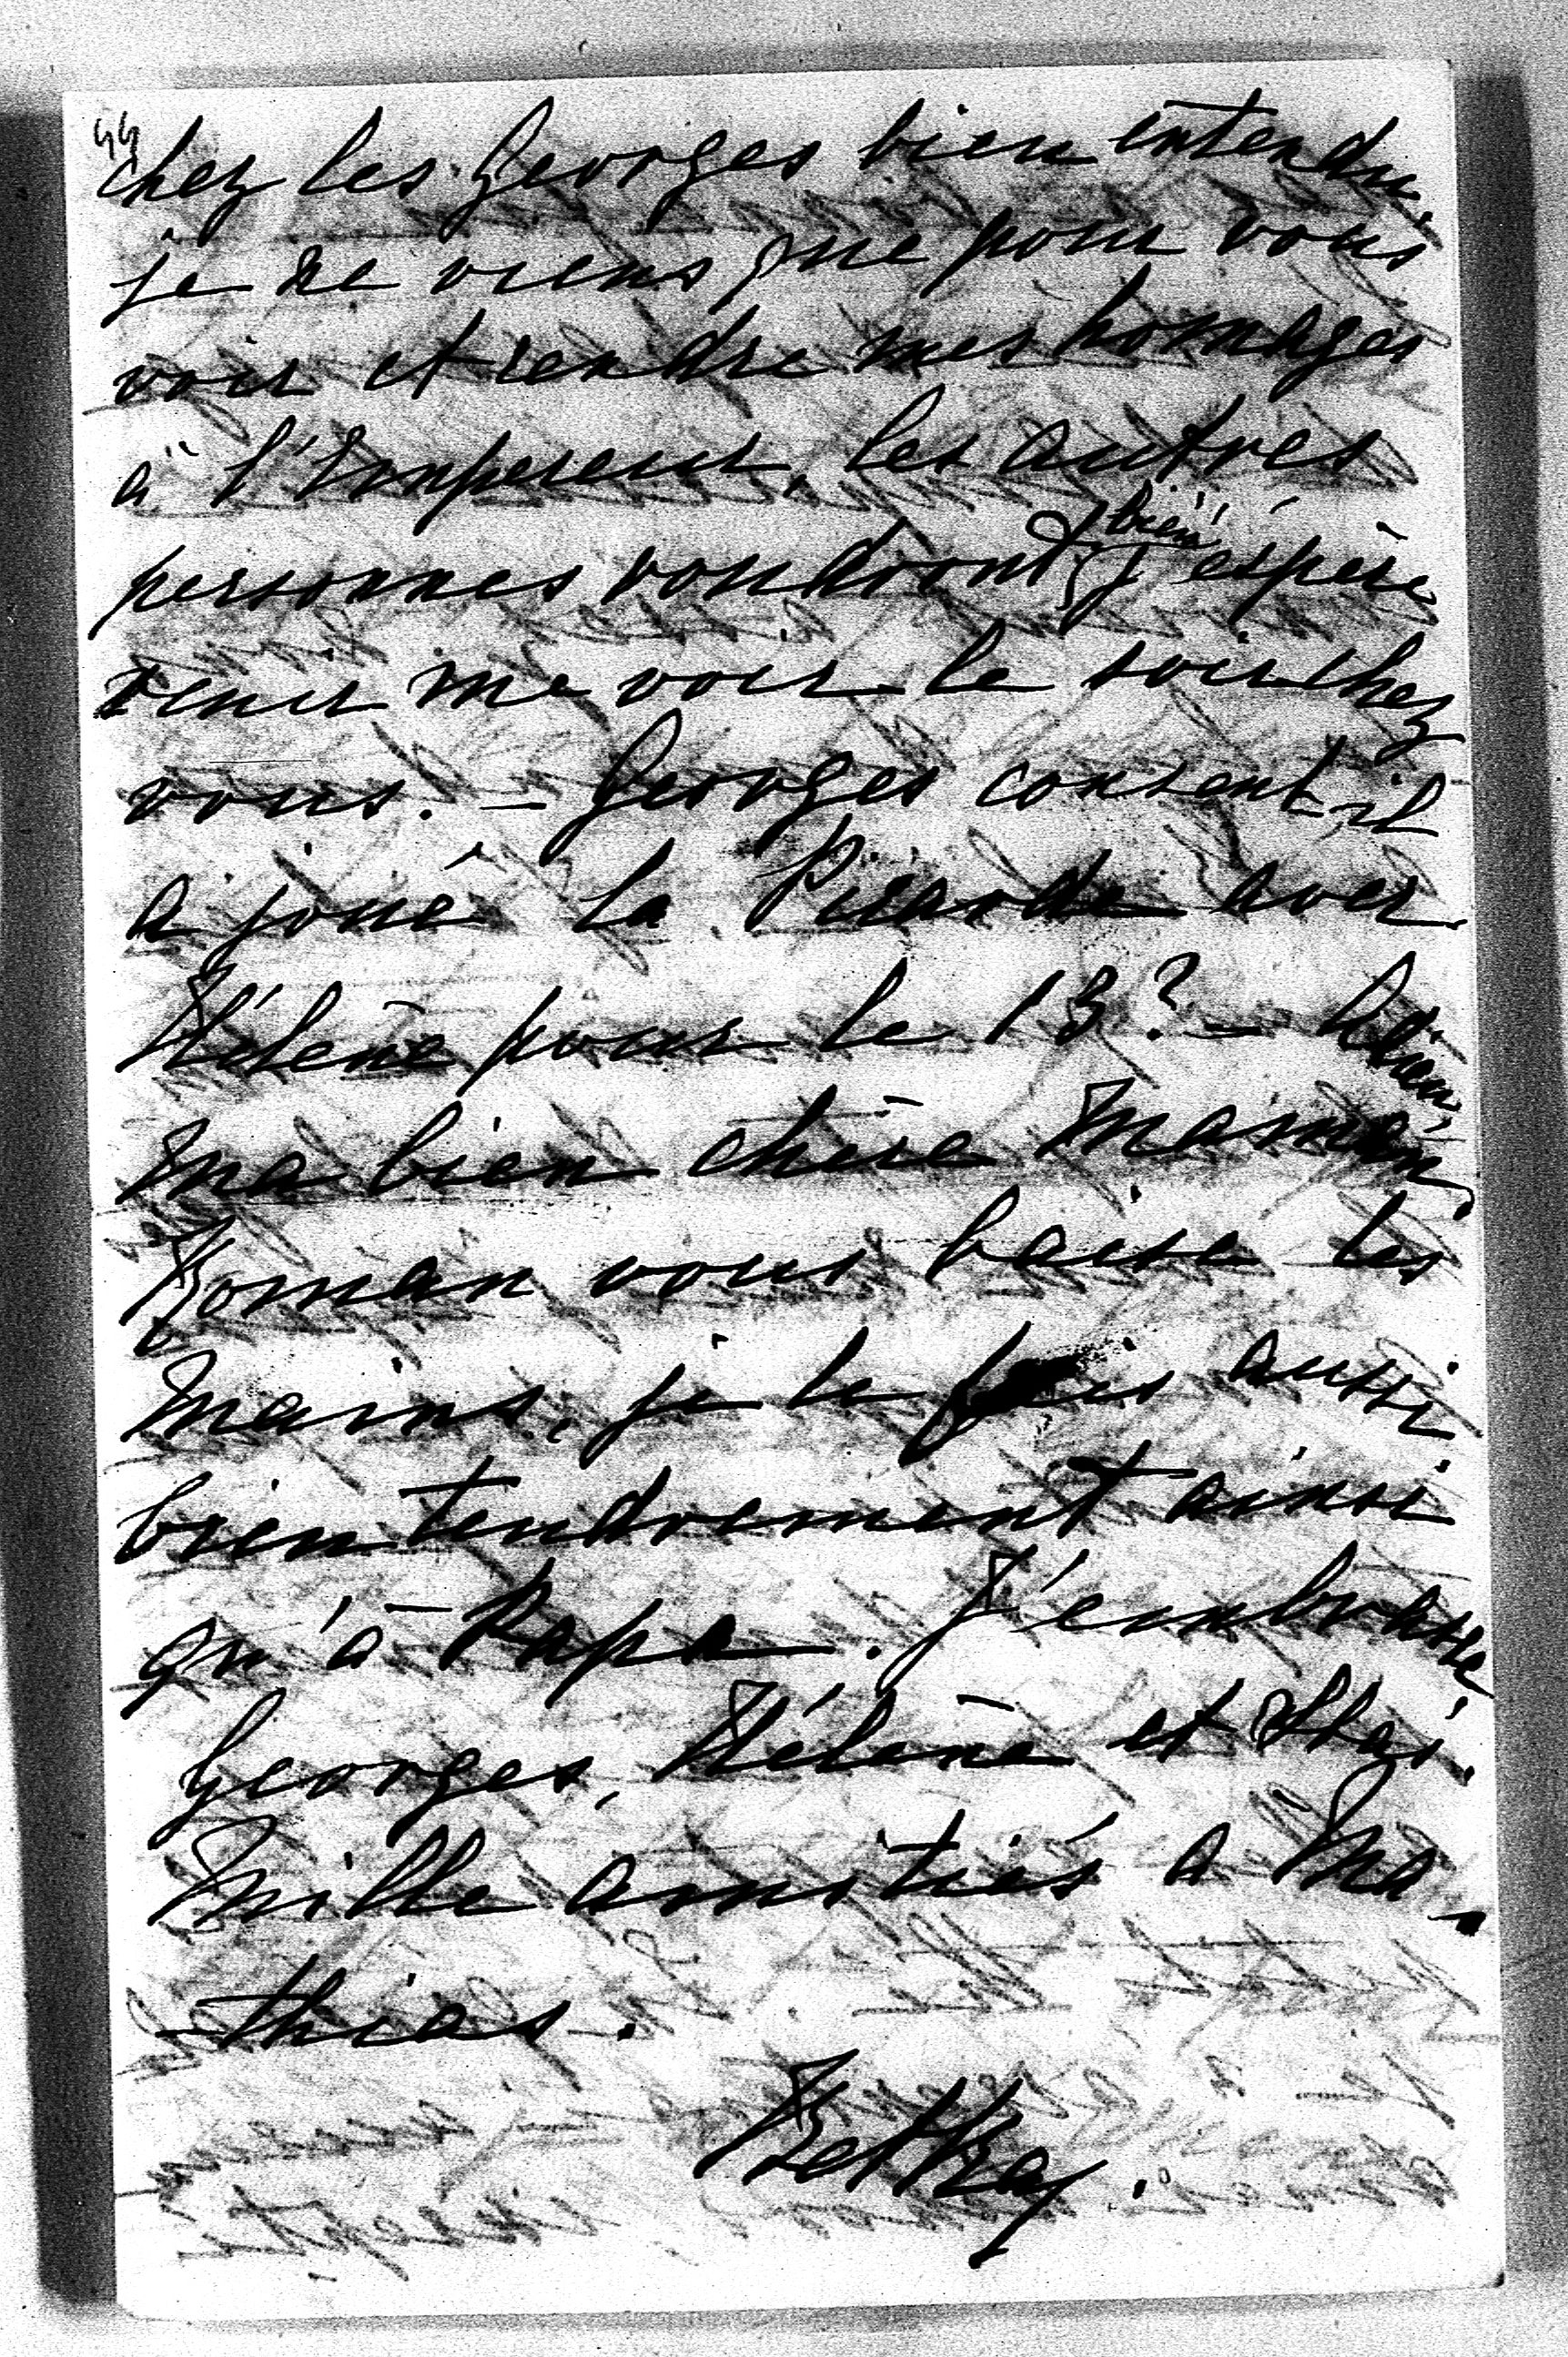 44
chez les Georges bien entendu,
je ne viens que pour vous
voir et rendre mes homages
à l'Empereur, les autres
personnes voudront bien j'espère
venir me voir le soir chez
vous. — Georges consent-il
a joué la avec
Hélène pour le 13? — Adieu,
ma bien chère Maman,
Roman vous baise les
mains, je le fais aussi
bien tendrement ainsi
qu'à Papa. J'embrasse
Georges, Hélène et
Mille amitiés a Ma-
-thias.
Betka.